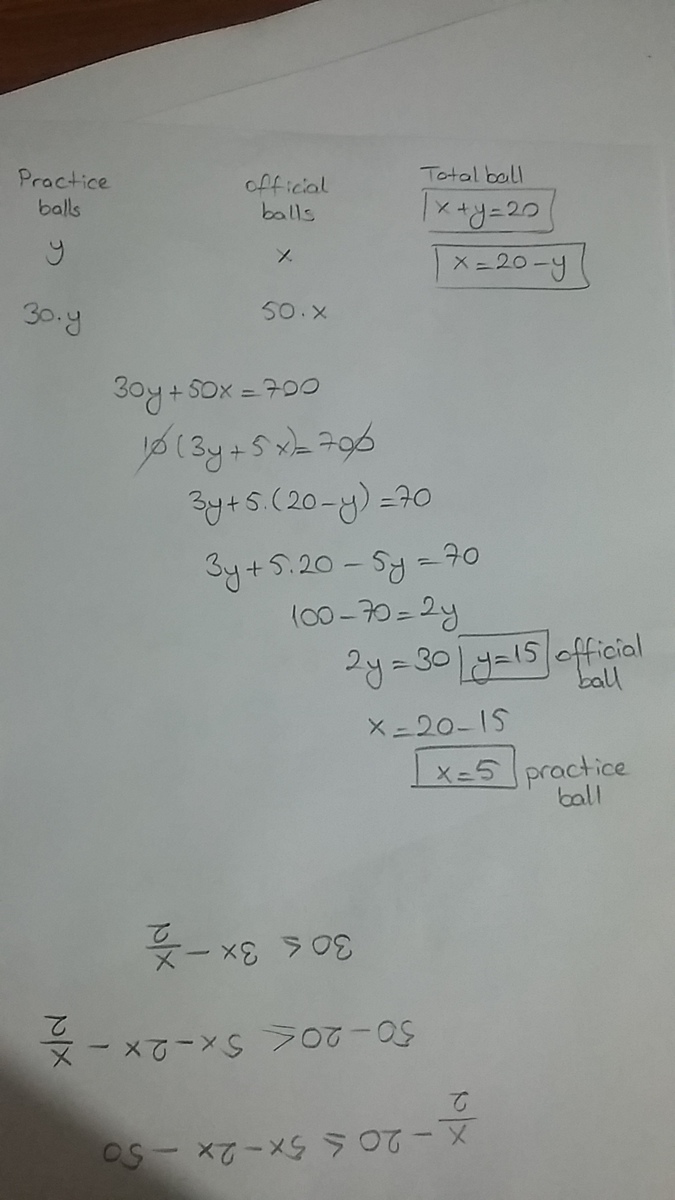 Practice balls
official balls
Total ball
y
x
x+y=20
x=20-y
30.y
50.x
30y+50x=700
10(3y+5x)=700
3y+5.(20-y)=70
3y+5.20-5y=70
100-70=2y
2y=30 y=15 official ball
x=20-15
x=5 practice ball
x/2-20≤5x-2x-50
50-20≤5x-2x-x/2
30≤3x-x/2